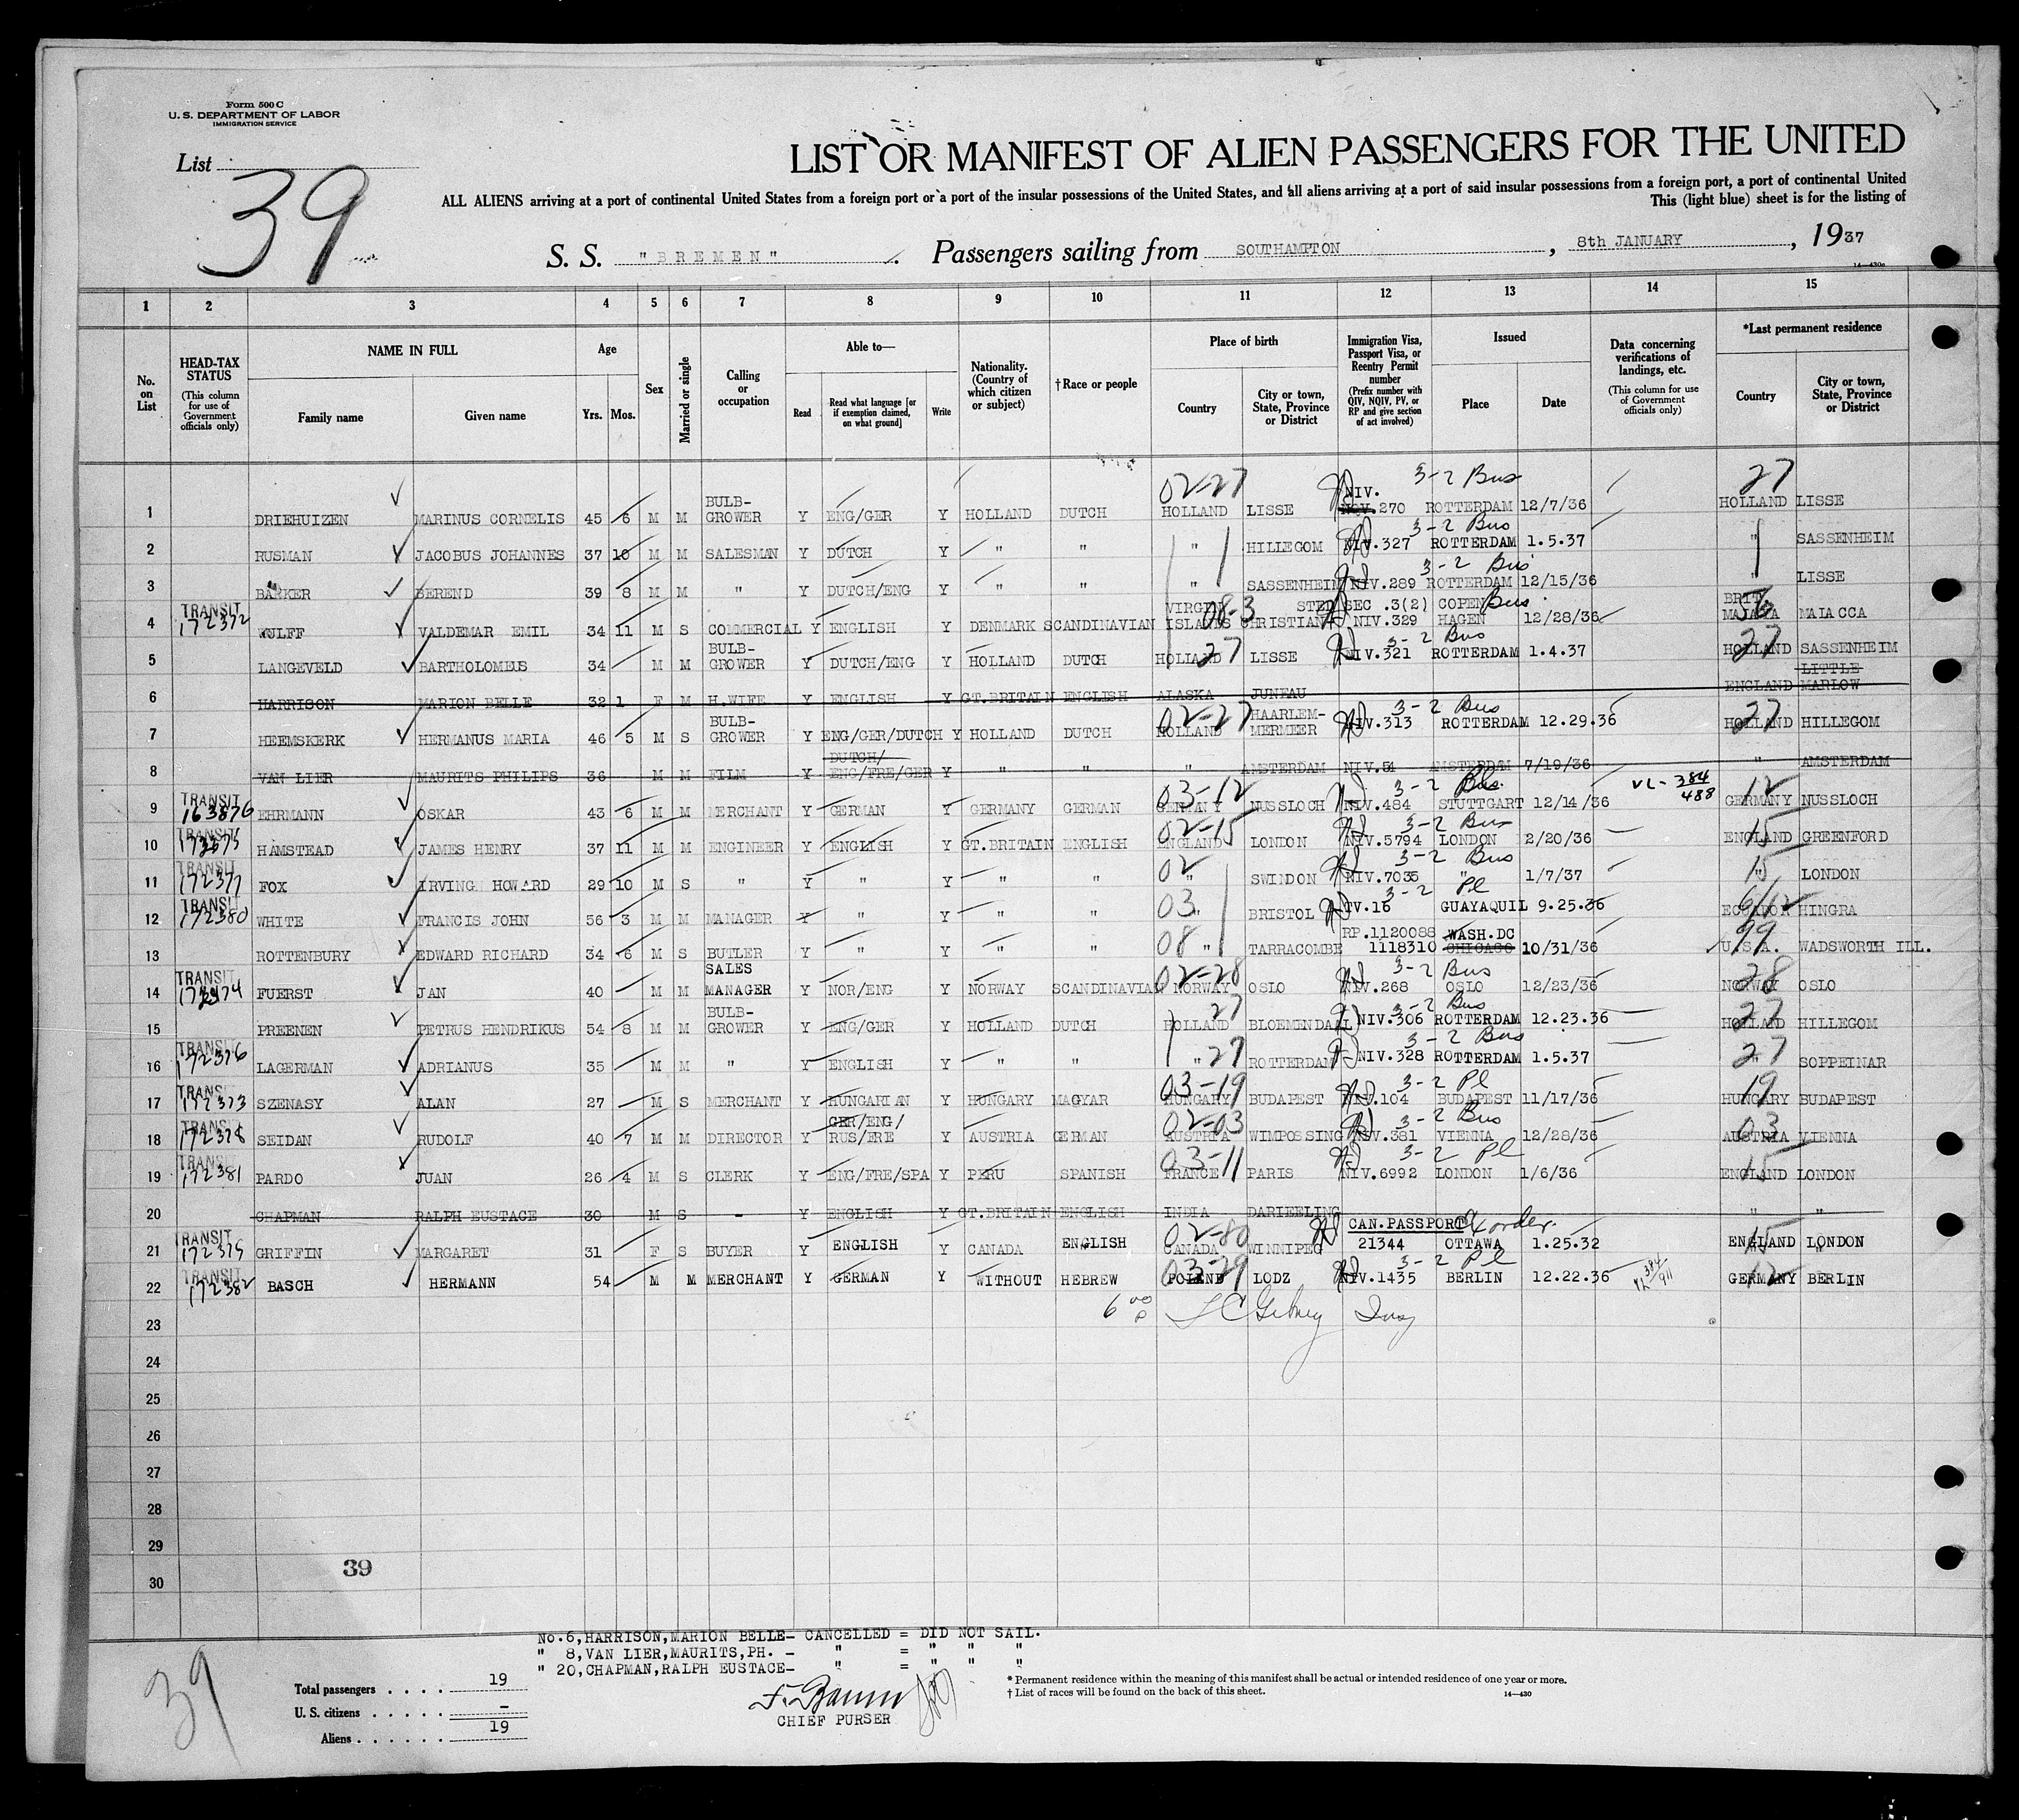 Form 500 C
U. S. DEPARTMENT OF LABOR
IMMIGRATION SERVICE
List
39
LIST OR MANIFEST OF ALIEN PASSENGERS FOR THE UNITED
ALL ALIENS arriving at a port of continental United States from a foreign port or a port of the insular possessions of the United States, and all aliens arriving at a port of said insular possessions from a foreign port, a port of continental United
This (light blue) sheet is for the listing of
S. S. "BREMEN" Passengers sailing from SOUTHAMPTON, 8th JANUARY, 1937
14—430a
1 2 3 4 5 6 7 8 9 10 11 12 13 14 15
No. on List
HEAD-TAX STATUS (This column for use of Government officials only)
NAME IN FULL
Family name Given name
Age
Yrs. Mos.
Sex
Married or single
Calling or occupation
Able to—
Read Read what language [or if exemption claimed, on what ground] Write
Nationality. (Country of which citizen or subject)
†Race or people
Place of birth
Country City or town, State, Province or District
Immigration Visa, Passport Visa, or Reentry Permit number (Prefix number with QIV, NQIV, PV, or RP and give section of act involved)
Issued
Place Date
Data concerning verifications of landings, etc. (This column for use of Government officials only)
*Last permanent residence
Country City or town, State, Province or District
02-27 3-2 Bus 27
1 DRIEHUIZEN MARINUS CORNELIS 45 6 M M BULB-GROWER Y ENG/GER Y HOLLAND DUTCH HOLLAND LISSE NIV. 270 ROTTERDAM 12/7/36 HOLLAND LISSE
3-2 Bus
2 RUSMAN JACOBUS JOHANNES 37 10 M M SALESMAN Y DUTCH Y " " " HILLEGOM NIV.327 ROTTERDAM 1.5.37 " SASSENHEIM
3-2 Bus
3 BAKKER BEREND 39 8 M M " Y DUTCH/ENG Y " " " SASSENHEIM NIV.289 ROTTERDAM 12/15/36 " LISSE
TRANSIT 172372 08-3 Bus
4 WULFF VALDEMAR EMIL 34 11 M S COMMERCIAL Y ENGLISH Y DENMARK SCANDINAVIAN VIRGIN ISLANDS CHRISTIANSTED SEC .3(2) NIV.329 COPENHAGEN 12/28/36 BRIT. MALAYA MALACCA
27 3-2 Bus 27
5 LANGEVELD BARTHOLOMEUS 34 M M BULB-GROWER Y DUTCH/ENG Y HOLLAND DUTCH HOLLAND LISSE NIV.321 ROTTERDAM 1.4.37 HOLLAND SASSENHEIM
6 HARRISON MARION BELLE 32 1 F M H.WIFE Y ENGLISH Y GT.BRITAIN ENGLISH ALASKA JUNEAU ENGLAND LITTLE MARLOW
02-27 3-2 Bus 27
7 HEEMSKERK HERMANUS MARIA 46 5 M S BULB-GROWER Y ENG/GER/DUTCH Y HOLLAND DUTCH HOLLAND HAARLEM-MERMEER NIV.313 ROTTERDAM 12.29.36 HOLLAND HILLEGOM
8 VAN LIER MAURITS PHILIPS 36 M M FILM Y DUTCH/ENG/FRE/GER Y " " " AMSTERDAM NIV.51 AMSTERDAM 7/19/36 " AMSTERDAM
TRANSIT 163876 03-12 3-2 VL-384/488 12
9 EHRMANN OSKAR 43 6 M M MERCHANT Y GERMAN Y GERMANY GERMAN GERMANY NUSSLOCH NIV.484 STUTTGART 12/14/36 GERMANY NUSSLOCH
TRANSIT 02-15 3-2 Bus 15
10 HAMSTEAD JAMES HENRY 37 11 M M ENGINEER Y ENGLISH Y GT.BRITAIN ENGLISH ENGLAND LONDON NIV.5794 LONDON 12/20/36 ENGLAND GREENFORD
TRANSIT 172377 02 3-2 Bus 15
11 FOX IRVING HOWARD 29 10 M S " Y " Y " " " SWINDON NIV.7035 " 1/7/37 " LONDON
TRANSIT 172380 03 3-2 Pl
12 WHITE FRANCIS JOHN 56 3 M M MANAGER Y " Y " " " BRISTOL NIV.16 GUAYAQUIL 9.25.36 ECUADOR HINGRA
08 99
13 ROTTENBURY EDWARD RICHARD 34 6 M S BUTLER Y " Y " " " TARRACOMBE RP.1120088 1118310 WASH.DC CHICAGO 10/31/36 U.S.A. WADSWORTH ILL.
TRANSIT 02-28 3-2 Bus 28
14 FUERST JAN 40 M M SALES MANAGER Y NOR/ENG Y NORWAY SCANDINAVIAN NORWAY OSLO NIV.268 OSLO 12/23/36 NORWAY OSLO
27 3-2 Bus 27
15 PREENEN PETRUS HENDRIKUS 54 8 M M BULB-GROWER Y ENG/GER Y HOLLAND DUTCH HOLLAND BLOEMENDAAL NIV.306 ROTTERDAM 12.23.36 HOLLAND HILLEGOM
TRANSIT 172376 27 3-2 Bus 27
16 LAGERMAN ADRIANUS 35 M M " Y ENGLISH Y " " " ROTTERDAM NIV.328 ROTTERDAM 1.5.37 " SOPPEINAR
TRANSIT 172373 03-19 3-2 Pl 19
17 SZENASY ALAN 27 M S MERCHANT Y HUNGARIAN Y HUNGARY MAGYAR HUNGARY BUDAPEST NIV.104 BUDAPEST 11/17/36 HUNGARY BUDAPEST
TRANSIT 172378 02-03 3-2 Bus 03
18 SEIDAN RUDOLF 40 7 M M DIRECTOR Y GER/ENG/RUS/FRE Y AUSTRIA GERMAN AUSTRIA WIMPOSSING NIV.381 VIENNA 12/28/36 AUSTRIA VIENNA
TRANSIT 172381 03-11 3-2 Pl 15
19 PARDO JUAN 26 4 M S CLERK Y ENG/FRE/SPA Y PERU SPANISH FRANCE PARIS NIV.6992 LONDON 1/6/36 ENGLAND LONDON
20 CHAPMAN RALPH EUSTACE 30 M S - Y ENGLISH Y GT.BRITAIN ENGLISH INDIA DARJEELING " "
TRANSIT 172375 02-80 order. 15
21 GRIFFIN MARGARET 31 F S BUYER Y ENGLISH Y CANADA ENGLISH CANADA WINNIPEG CAN.PASSPORT 21344 OTTAWA 1.25.32 ENGLAND LONDON
TRANSIT 172382 03-29 3-2 Pl 12
22 BASCH HERMANN 54 M M MERCHANT Y GERMAN Y WITHOUT HEBREW POLAND LODZ NIV.1435 BERLIN 12.22.36 GERMANY BERLIN
23
24
25
26
27
28
29
39
30
No.6,HARRISON,MARION BELLE- CANCELLED = DID NOT SAIL.
" 8,VAN LIER,MAURITS,PH. - " = " " "
" 20,CHAPMAN,RALPH EUSTACE- " = " " "
39
Total passengers . . . . 19
U. S. citizens . . . . . -
Aliens . . . . . . 19
CHIEF PURSER
* Permanent residence within the meaning of this manifest shall be actual or intended residence of one year or more.
† List of races will be found on the back of this sheet.
14—430